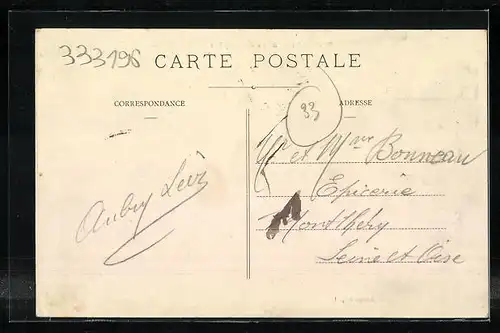 333196
CARTE POSTALE
CORRESPONDANCE
ADRESSE
33
Mr et Mme Bonneau
Epicerie
Montlhéry
Seine et Oise
Aubry